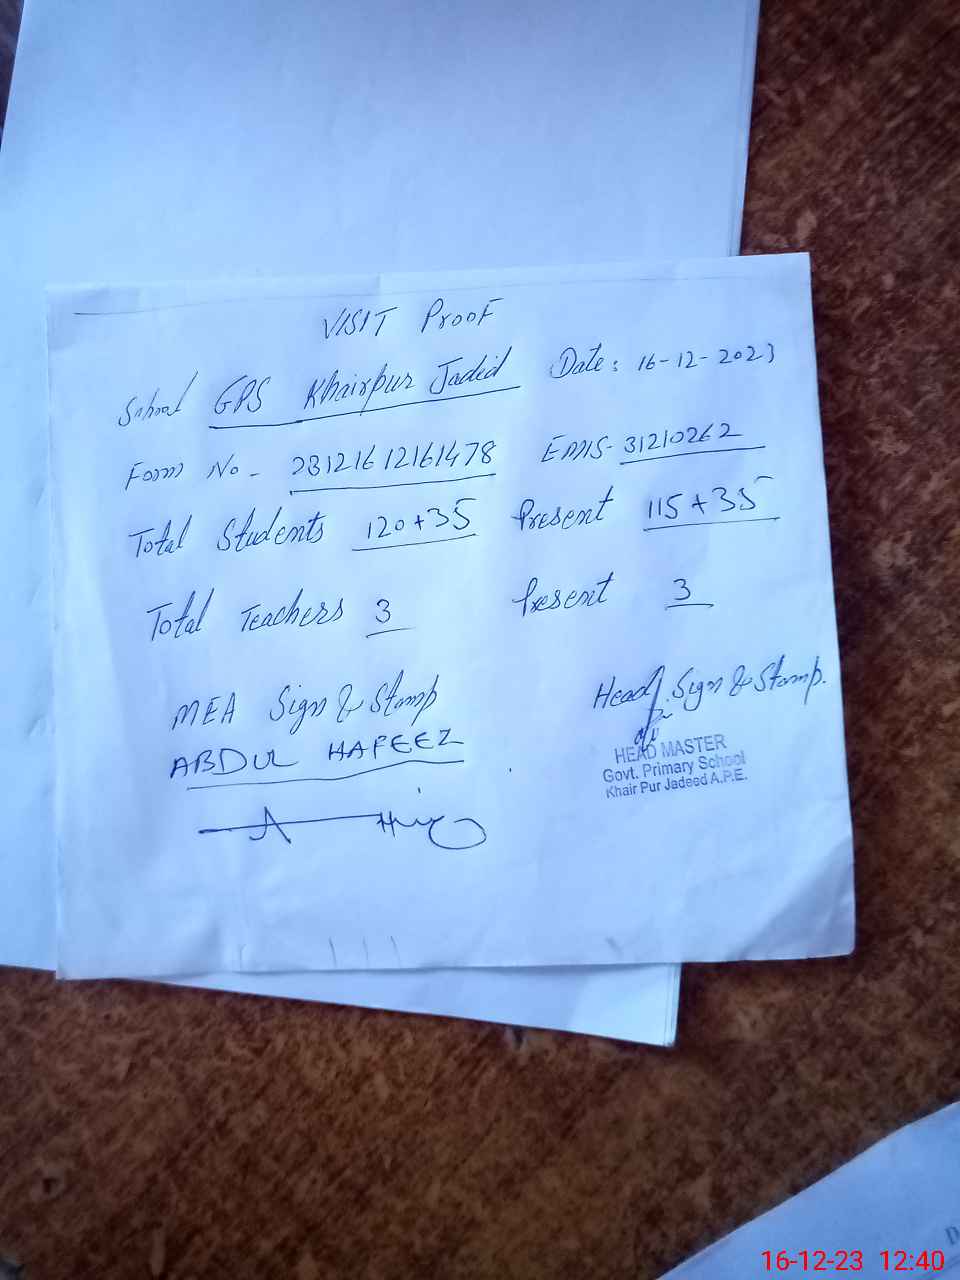 VISIT PROOF
School GPS Khairpur Jadid Date: 16-12-2023
Form No - 23121612161478 EMIS- 31210262
Total Students 120+35 Present 115+35
Total Teachers 3 Present 3
MEA Sign & Stamp Head Sign & Stamp.
ABDUL HAFEEZ
HEAD MASTER
Govt. Primary School
Khair Pur Jadeed A.P.E.
16-12-23 12:40